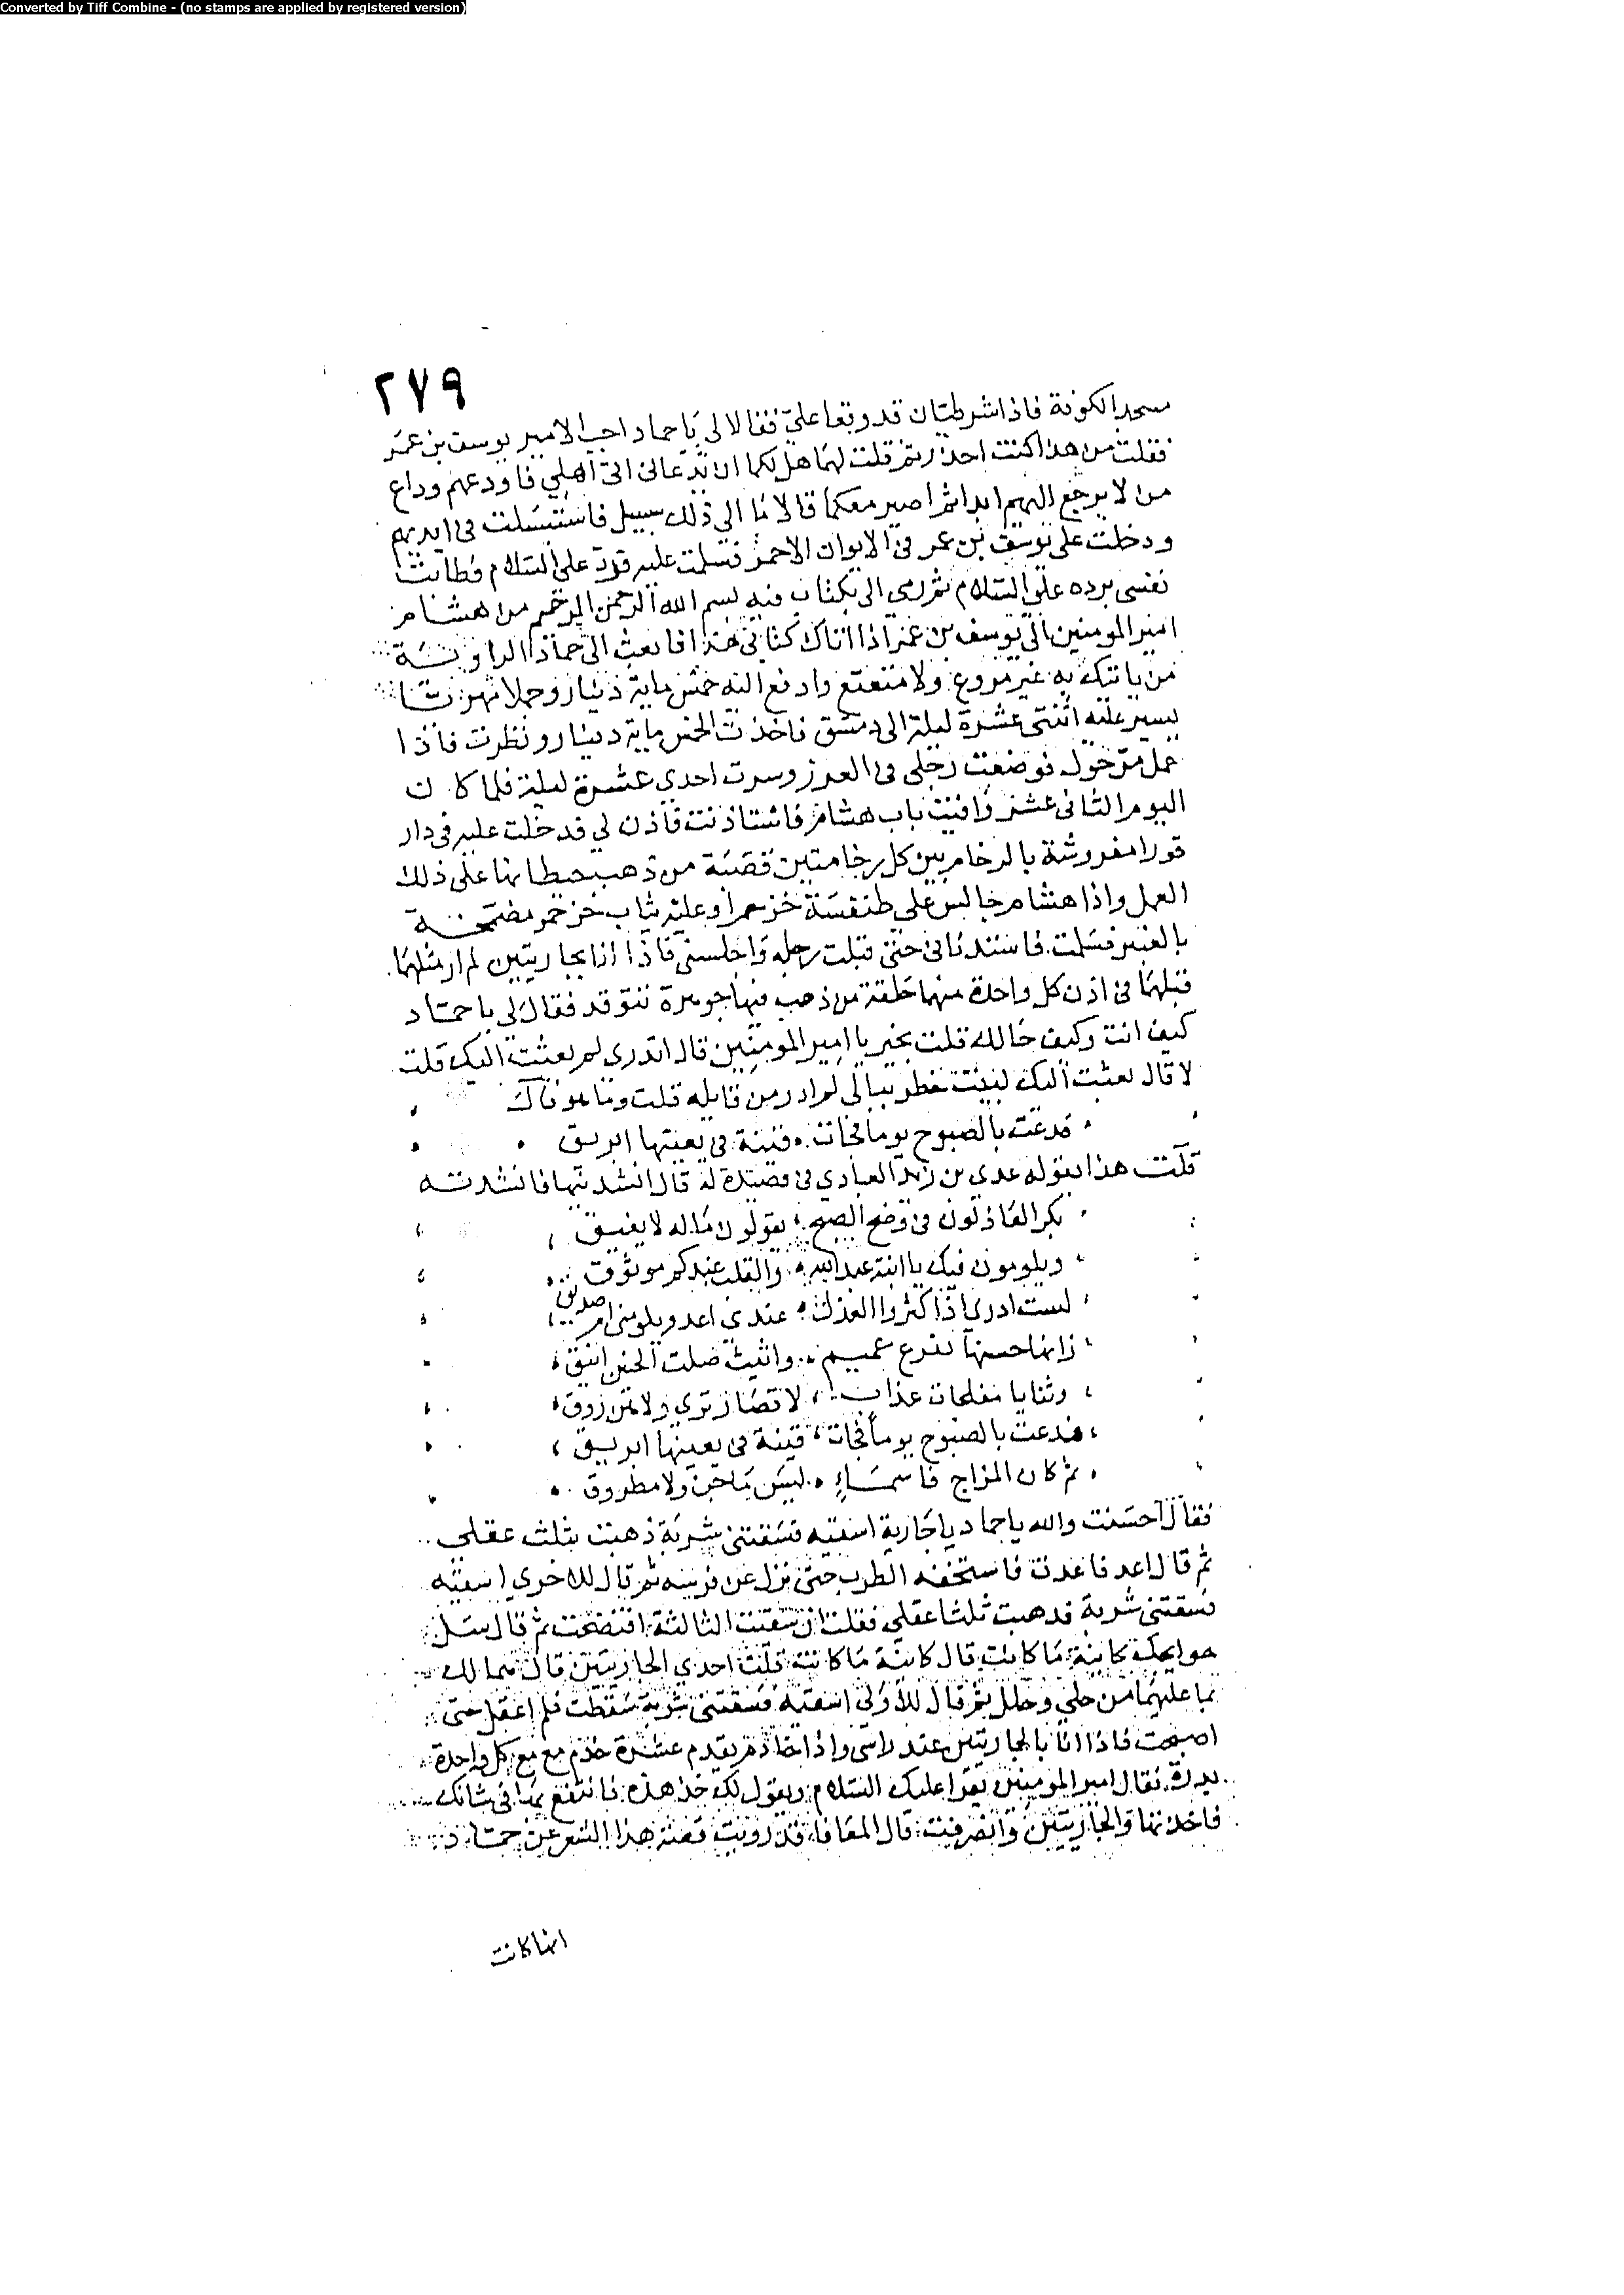 Converted by Tiff Combine - (no stamps are applied by registered version)
٢٧٩
مسجد الكوفة فاذا شرطيان قد وقعا علي فقالا لي يا حماد اجب الامير يوسف بن عمر
فقلت من هذا كنت احذر ثم قلت لهما هل لكما ان تدعاني اتي اهلي فاودعهم وداع
من لا يرجع اليهم ابدا ثم اصير معكما قالا ما الي ذلك سبيل فاستبسلت في ايديهم
ودخلت على يوسف بن عمر في الايوان الاحمر فسلمت عليه فرد علي السلام فطابت
نفسي برده علي السلام ثم رمى الي بكتاب فيه بسم الله الرحمن الرحيم من هشام
امير المومنين الي يوسف بن عمر اذا اتاك كتابي هذا فابعث الي حماد الراوية
من ياتيك به غير مروع ولا متعتع وادفع اليه خمس ماية دينار وجملا مهريا
يسير عليه اثنتي عشرة ليلة الى دمشق فاخذت الخمس ماية دينار ونظرت فاذا
جمل مرحول فوضعت رجلي في الغرز وسرت احدي عشرة ليلة فلما كان
اليوم الثاني عشر وافيت باب هشام فاستاذنت فاذن لي فدخلت عليه في دار
قورا مفروشة بالرخام بين كل رخامتين قصبة من ذهب حيطانها على ذلك
العمل واذا هشام جالس علي طنفسة خز حمرا وعليه ثياب خز حمر مضمخة
بالعنبر فسلمت فاستدناني حتى قبلت رجله واجلسني فاذا انا بجاريتين لم ار مثلهما
قبلهما في اذن كل واحدة منهما حلقة من ذهب فيها جوهرة تتوقد فقال لي يا حماد
كيف انت وكيف حالك قلت بخير يا امير المومنين قال اتدري لم بعثت اليك قلت
لا قال بعثت اليك لبيت خطر ببالي لم ادر من قايله قلت وما هو قال
فدعت بالصبوح يوما فجات قينة في يمينها ابريق
قلت هذا يقوله عدي بن زيد العبادي في قصيدة له قال انشدنيها فانشدته
بكر العاذلون في وضح الصبح يقولون ما له لا يفيق
ويلومون فيك يا ابنة عبد الله والقلب عندكم موثوق
لست ادري اذ اكثروا العذل عندي اعدو يلومني ام صديق
زانها حسنها لفرع عميم واثيث صلت الجبين انيق
وثنايا مفلجات عذاب لا قصار تري ولا هن روق
فدعت بالصبوح يوما فجات قينة في يمينها ابريق
ثم كان المزاج فا سماء ليس بآجن ولا مطروق
فقال احسنت والله يا حماد يا جارية اسقيه فسقتني شربة ذهبت بثلث عقلي
ثم قال اعد فاعدت فاستخفه الطرب حتى نزل عن فرشه ثم قال للاخري اسقيه
فسقتني شربة فذهبت ثلثا عقلي فقلت ان سقيت الثالثة افتضحت ثم قال سل
حوايجك كاينة ما كانت قال كاينة ما كانت قلت احدي الجاريتين قال هما لك
بما عليهما من حلي وحلل ثم قال للاولى اسقيه فسقتني شربة سقطت فلم اعقل حتى
اصبحت فاذا انا بالجاريتين عند راسي واذا خادم يقدم عشرة خدم مع مع كل واحدة
بدرة فقال امير المومنين يقرا عليك السلام ويقول لك خذ هذه فانتفع بها في شانك
فاخذتها والجاريتين وانصرفت قال المعافا قد رويت قصة هذا الشعر عن حماد
انها كانت